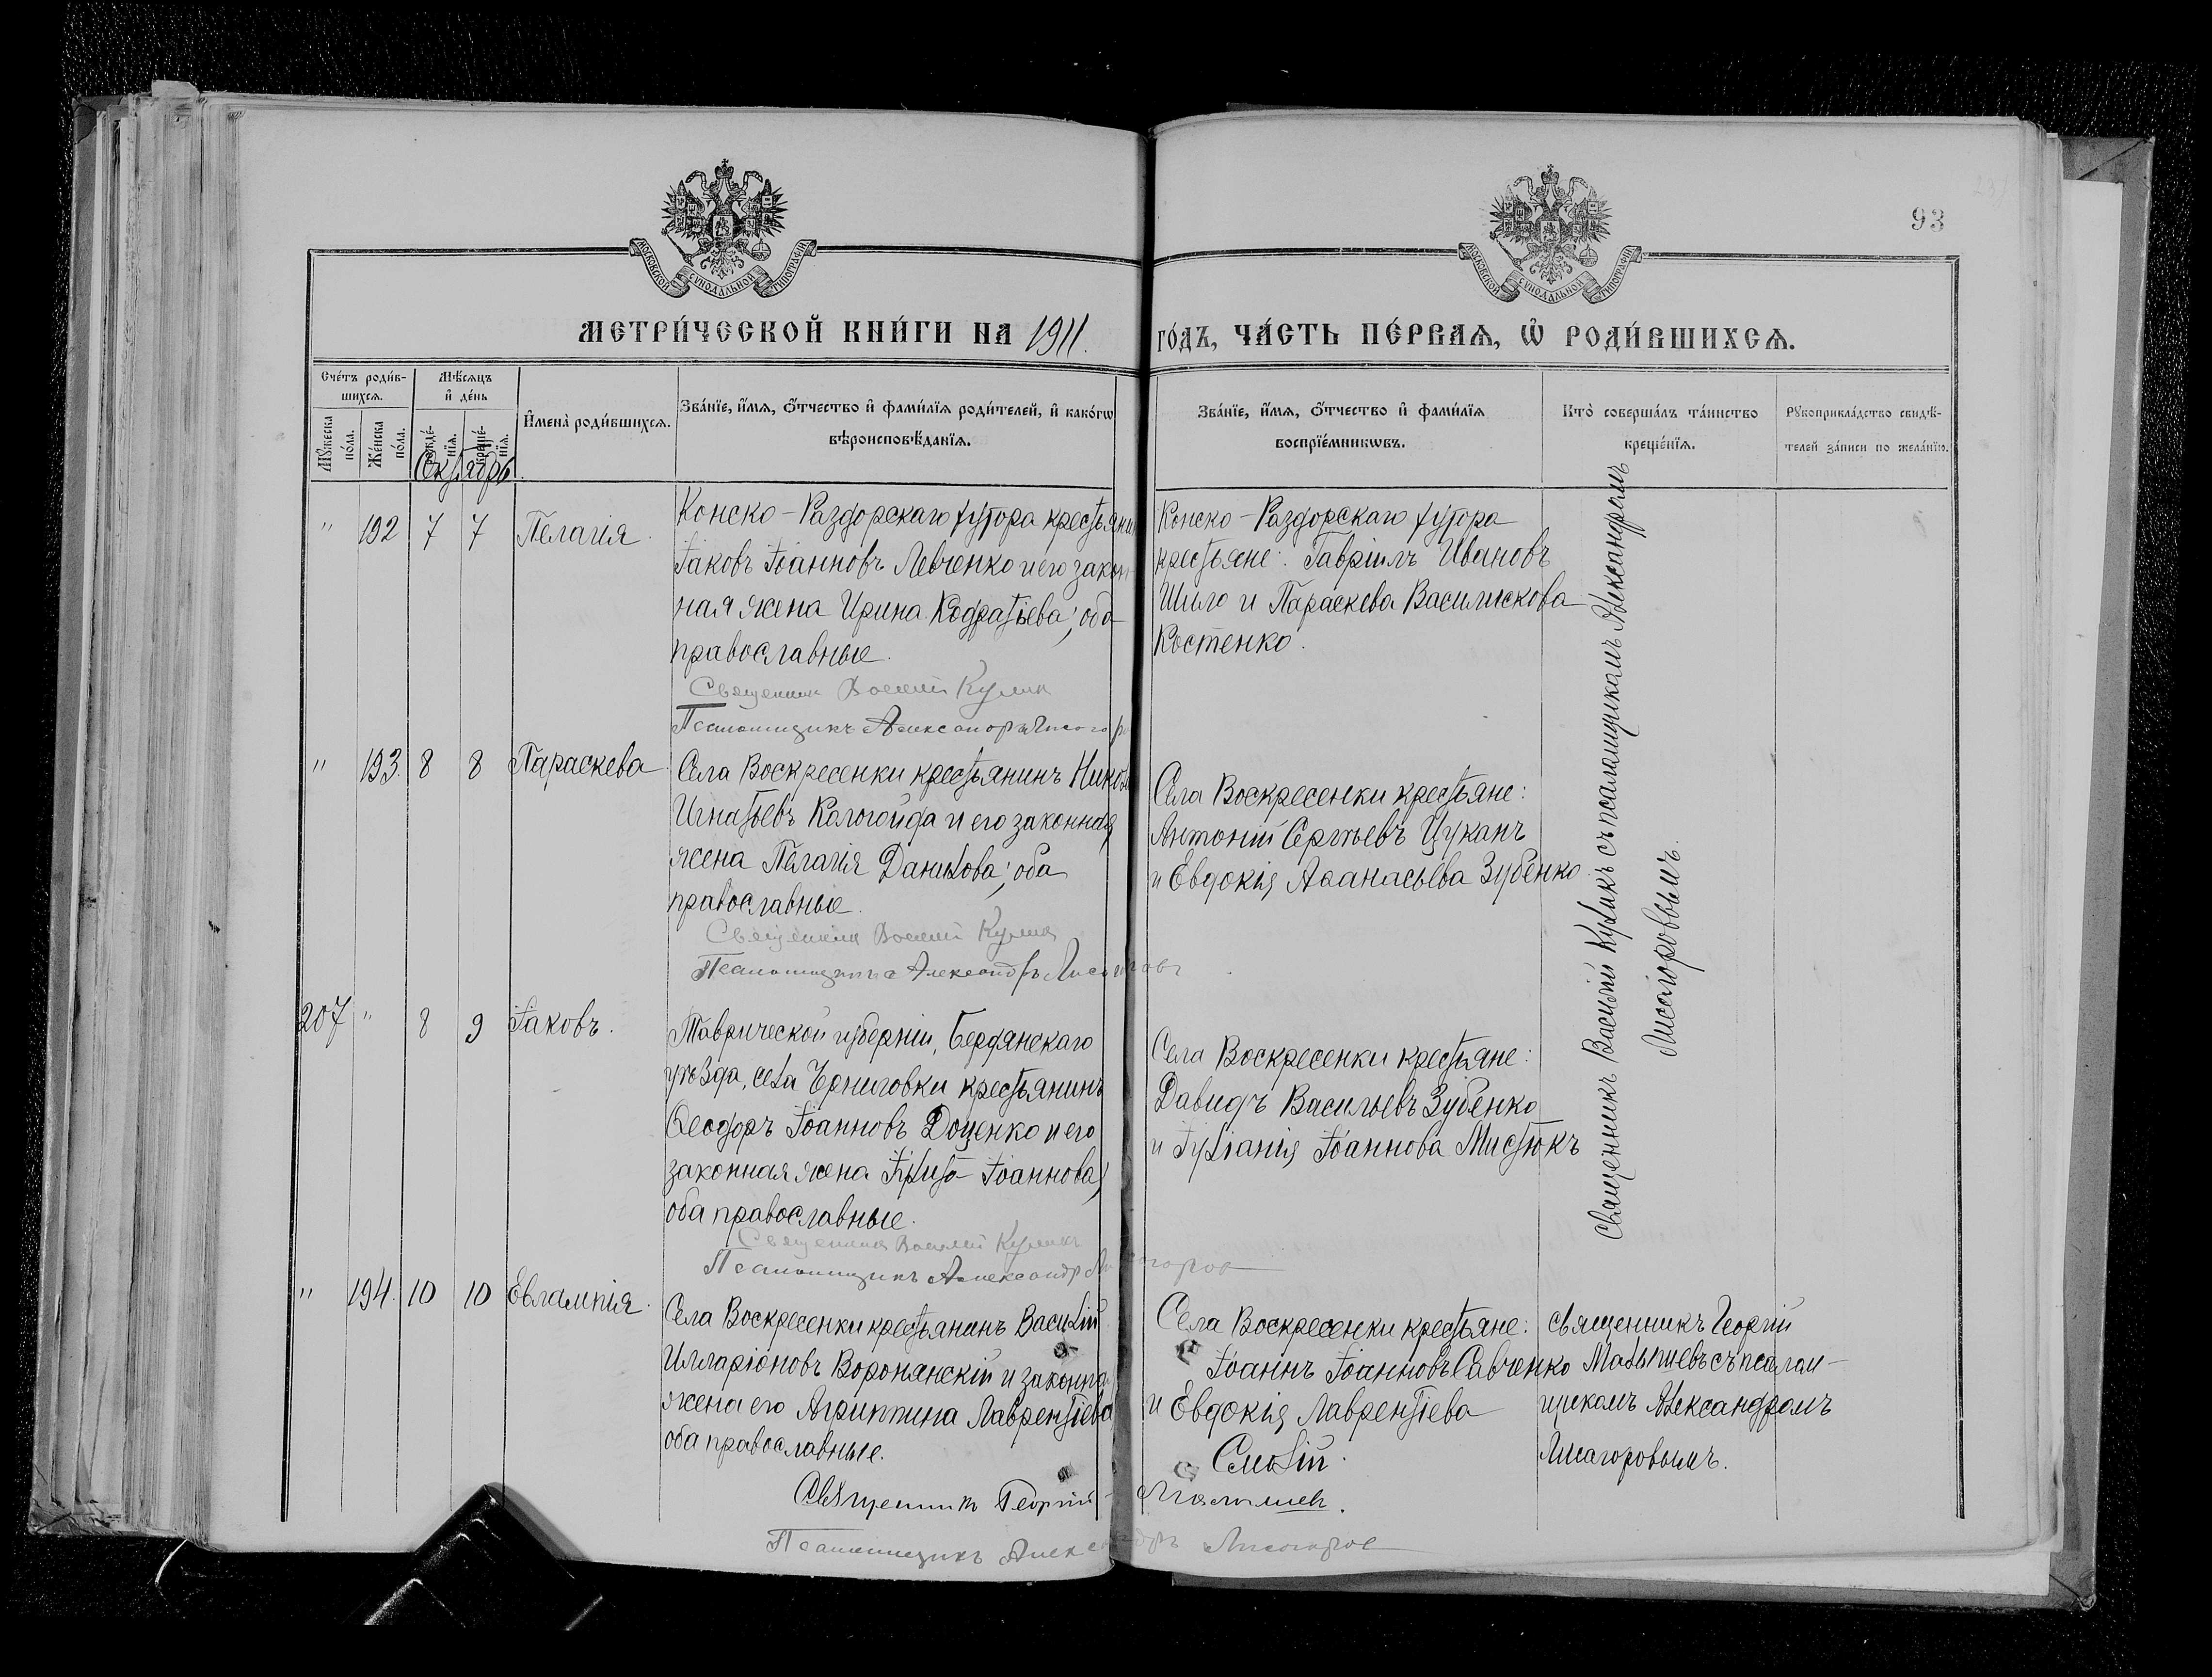 93
МОСКОВСКОЙ СѴНОДАЛЬНОЙ ТИПОГРАФІИ
МОСКОВСКОЙ СѴНОДАЛЬНОЙ ТИПОГРАФІИ
МЕТРИ́ЧЕСКОЙ КНИ́ГИ НА 1911. ГО́ДЪ, ЧА́СТЬ ПЕ́РВАЯ, Ѡ҆ РОДИ́ВШИХСЯ.
Сче́тъ роди́в-
шихся.
Мꙋ́жеска
по́ла.
Же́нска
по́ла.
Мѣ́сяцъ
и҆ де́нь
рожде́-
нїя.
креще́-
нїя.
И҆мена̀ роди́вшихся.
Зва́нїе, и҆́мя, ѻ҆́тчество и҆ фами́лїя роди́телей, и҆ како́гѡ
вѣроисповѣ́данїя.
Зва́нїе, и҆́мя, ѻ҆́тчество и҆ фами́лїя
воспрїе́мникѡвъ.
Кто̀ соверша́лъ та́инство
креще́нїя.
Рꙋкоприкла́дство свидѣ́-
телей за́писи по жела́нїю.
Октябрь.
" 192 7 7 Пелагія.
Конско-Раздорскаго хутора крестьянин
Іаковъ Іоанновъ Левченко и его закон-
ная жена Ирина Кодратіева; оба
православные.
Священник Василій Кулик
Псаломщикъ Александръ Лисогор
Конско-Раздорскаго хутора
крестьяне: Гавріилъ Ивановъ
Шило и Параскева Василискова
Костенко.
" 193. 8 8 Параскева
Села Воскресенки крестьянинъ Никола
Игнатьевъ Кологойда и его законная
жена Пелагія Данилова; оба
православные.
Священник Василій Кулик
Псаломщикъ Александръ Лисогоров
Села Воскресенки крестьяне:
Антоній Сергѣевъ Цуканъ
и Евдокія Аѳанасьева Зубенко.
207 " 8 9 Іаковъ.
Таврической губерніи, Бердянскаго
уѣзда, села Черниговки крестьянинъ
Ѳеодоръ Іоанновъ Доценко и его
законная жена Іоаннова;
оба православные.
Священник Василій Куликъ
Псаломщикъ Александр Лисогоров
Села Воскресенки крестьяне:
Давидъ Васильевъ Зубенко
и Іуліанія Іоаннова Мистюкъ
Священникъ Василій Куликъ съ псаломщикомъ Александромъ
Лисагоровымъ.
" 194. 10 10 Евлампія.
Села Воскресенки крестьянинъ Василій
Илларіоновъ Воронянскій и законная
жена его Агриппина Лаврентіева;
оба православные.
Священникъ Георгій Малышев.
Псаломщикъ Александръ Лисогоров
Села Воскресенки крестьяне:
Іоаннъ Іоанновъ Савченко
и Евдокія Лаврентіева
священникъ Георгій
Малышевъ съ псалом-
щикомъ Александромъ
Лисагоровымъ.